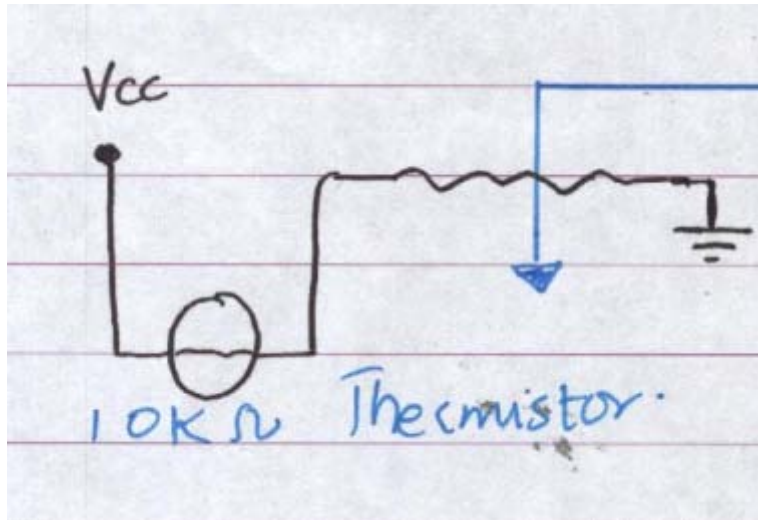 Vcc
10KΩ Thermistor.